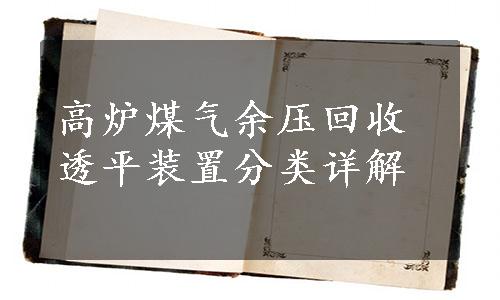 高炉煤气余压回收
透平装置分类详解